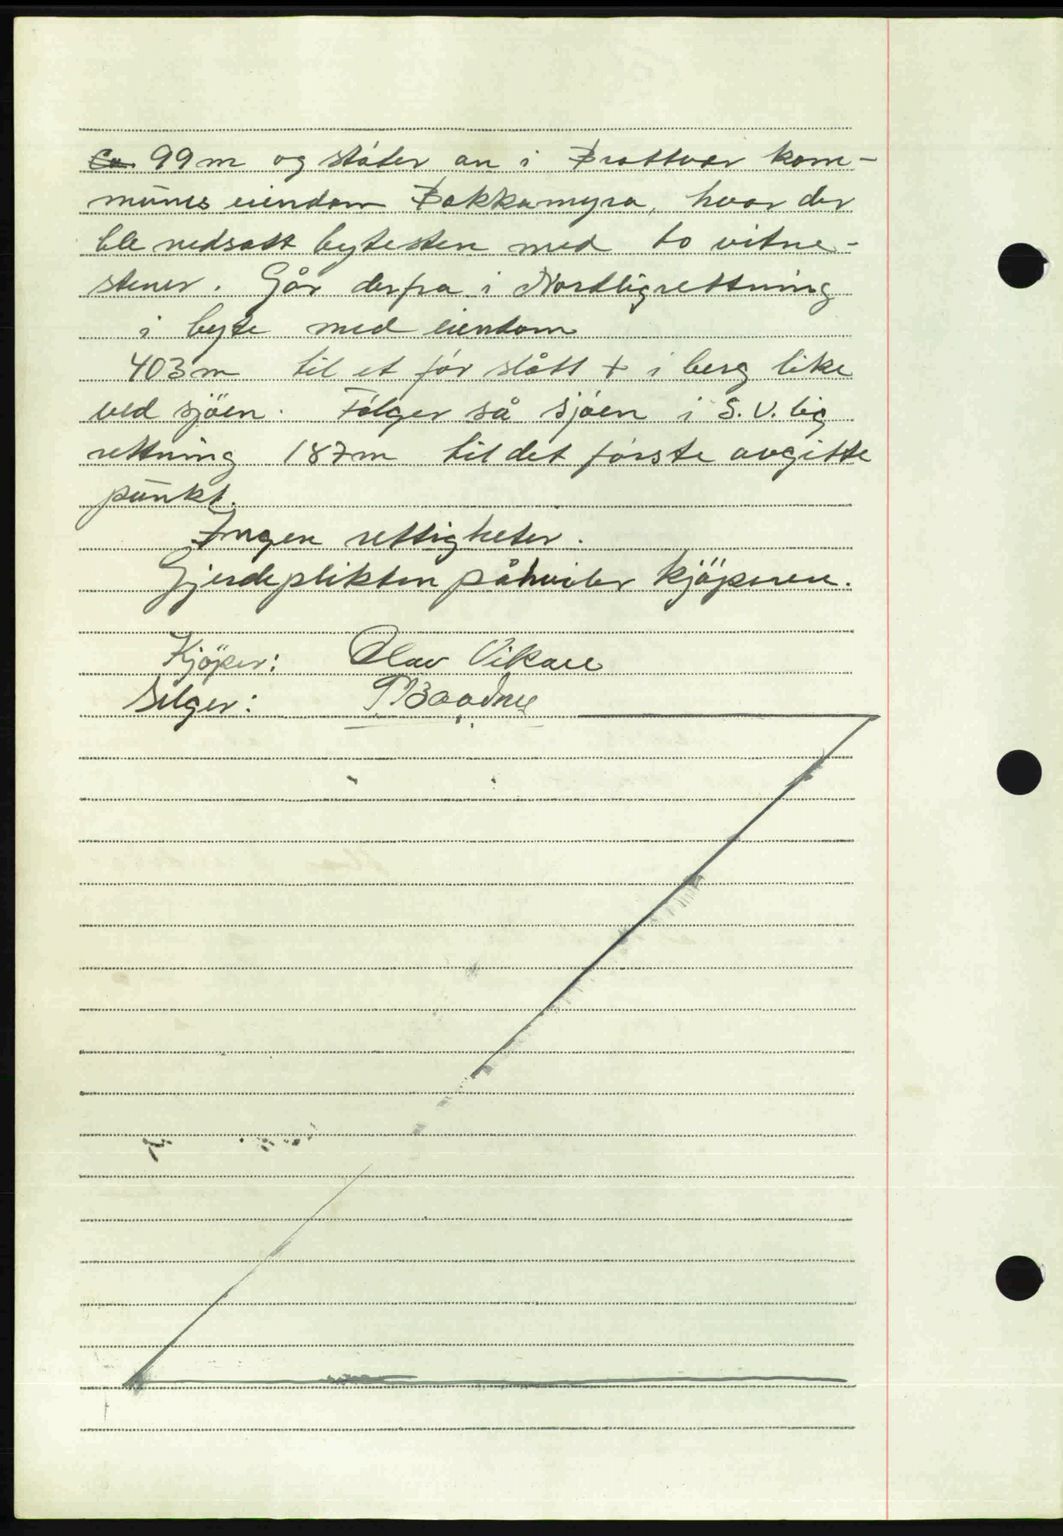 Ca. 99 m og støter an i Brattvær kom-
munes eiendom Bakkamyra, hvor der
ble nedsatt bytesten med to vitne-
stener. Går derfra i Nordligrettning
i byte med eiendom
403 m til et før slått + i berg like
ved sjöen. Følger så sjöen i S.V. lig
rettning 187 m til det første avgitte
punkt.
Ingen rettigheter.
Gjerdeplikten påhviler kjöperen.
Kjöper: Olav Vikan
Selger: